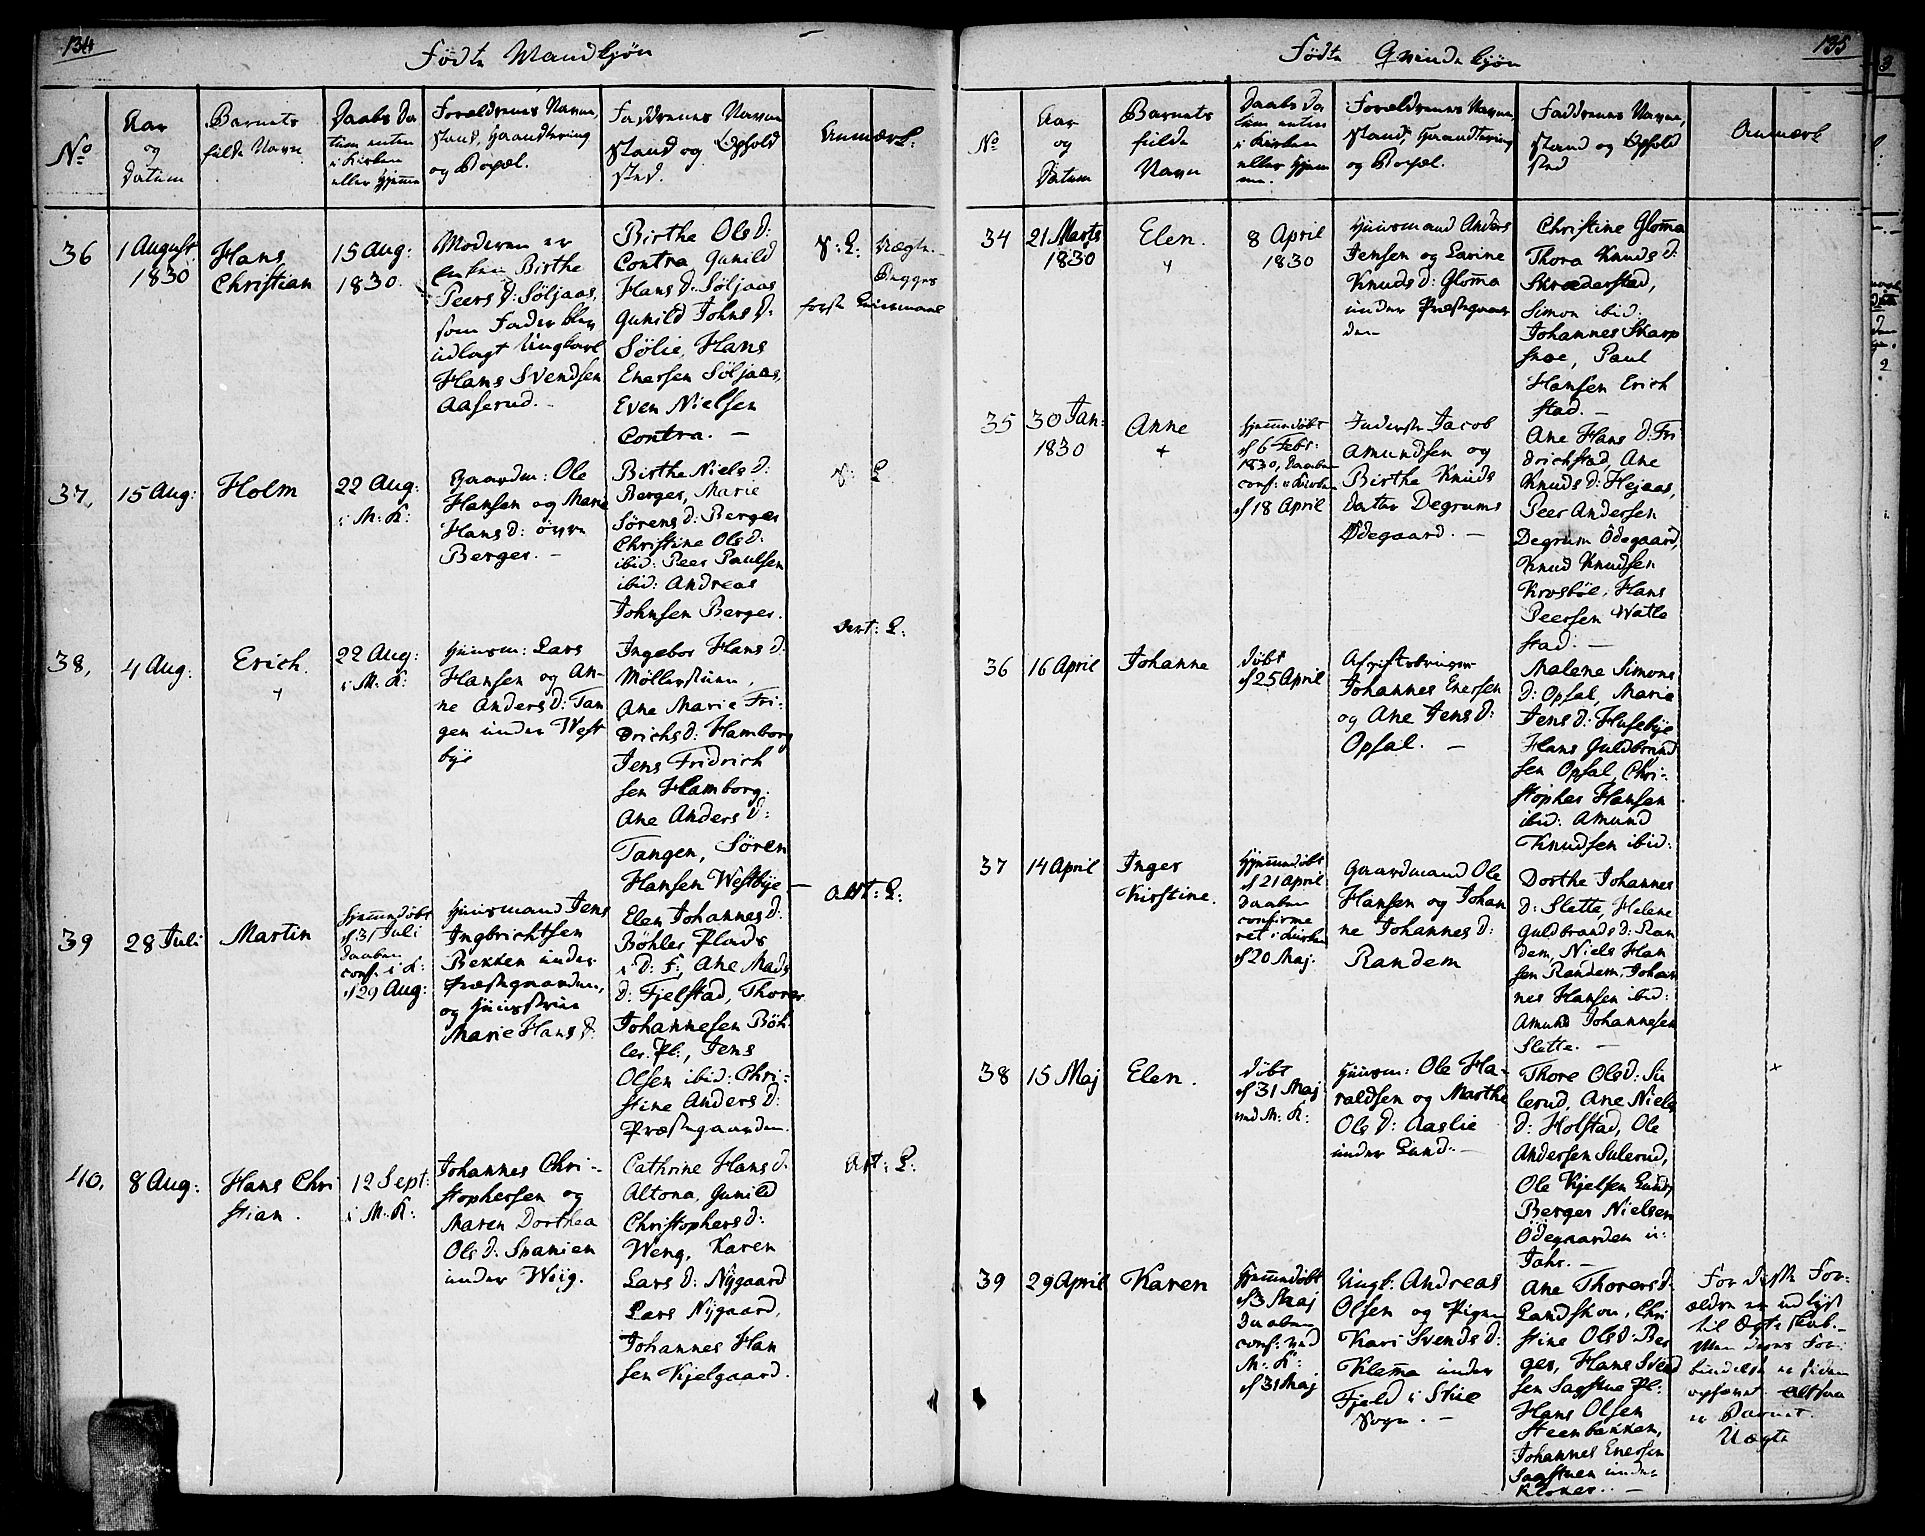 134
Födte Mandkjön
No
Aar
og
Datum
Barnets
fulde Navn
Daabs Da
tum enten
i Kirken
eller hjemme
Forældrenes Navne,
Stand, Haandtering
og Bopæl.
Faddrenes Navne
Stand og Ophold
sted.
Anmærk:
36
1 August
1830
Hans
Christian
15 Aug:
1830.
Moderen er
Enken Birthe
Peers d: Söljaas,
som Fader blev
udlagt Ungkarl
Hans Svendsen
Aaserud. -
Birthe Ols d:
Contra Gunild
Hans d: Söljaas
Gunild Johns d:
Sölie, Hans
Enersen Söljaas,
Even Nielsen
Contra. -
37,
15 Aug:
Holm
22 Aug:
i M: K:
Gaardm: Ole
Hansen og Marie
Hans d: övre
Berger. -
Birthe Niels d:
Berger, Marie
Sörens d: Berger
Christine Ols d:
ibid: Peer Paulsen
ibid: Andreas
Johnsen Berger.
38,
4 Aug:
Erich.
+
22 Aug:
i M: K:
Huusm: Lars
Hansen og An-
ne Anders d: Tan
gen under West
bye
Ingebor Hans d:
Möllerstuen,
Ane Marie Fri-
drichs d: Hamborg
Jens Fridrich
sen Hamborg.
Ane Anders d:
Tangen, Sören
Hansen Westbye -
39
28 Juli
Martin
Hjemmedöbt
d 31 Juli
Daaben
conf: i K:
d 29 Aug:
Huusmand Jens
Ingbrichtsen
Bekken under
Præstegaarden,
og Huustrue
Marie Hans d:
Elen Johannes d:
Böhler Plads
i D: F:, Ane Mads
d: Fjelstad, Thorer
Johannesen Böh-
ler Pl:, Jens
Olsen ibid: Chri-
stine Anders d:
Præstegaarden.
40,
8 Aug:
Hans Chri
stian.
12 Sept:
i M: K:
Johannes Chri-
stophersen og
Maren Dorthea
Ols d: Spanien
under Wiig.
Cathrine Hans d:
Altona, Gunild
Christophers d:
Weng, Karen
Lars d: Nÿgaard
Lars Nÿgaard,
Johannes Han
sen Kjelgaard.
135
Födte Qvindekjön
No
Aar
og
Datum
Barnets
fulde
Navn
Daabs Da
tum enten
i Kirken
eller hjem
me.
Forældrenes Navne,
Stand, Haandtering
og Bopæl.
Faddrenes Navne,
Stand og Ophold
sted
Anmærk
34
21 Marts
1830
Elen.
8 April
1830
Huusmand Anders
Jensen og Karine
Knuds d: Glom̅a
under Præstegaar
den
Christine Glom̅a
Thora Knuds d:
Skræderstad,
Simon ibid:
Johannes Skarp
snoe, Paul
Hansen Erich
stad. -
35
30 Jan:
1830
Anne
+
Hjemmedöbt
d 6 Febr:
1830, Daaben
conf: i Kirken
d 18 April
Inderst Jacob
Amundsen og
Birthe Knuds
datter Degrums
Ödegaard. -
Ane Hans d: Fri
drichstad, Ane
Knuds d: Hejaas,
Peer Andersen
Degrum Ödegaard,
Knud Knudsen
Krosböe, Hans
Peersen Watle
stad. -
36
16 April
Johanne
döbt
d 25 April
Johannes Enersen
og Ane Jens d:
Opsal. -
Malene Simons
d: Opsal, Marie
Jens d: Husebye
Hans Guldbrand
sen Opsal, Chri-
stopher Hansen
ibid: Amund
Knudsen ibid:
37
14 April
Inger
Kirstine.
Hjemmedöbt
d 21 April
Daaben
confirme
ret i Kirken
d 20 Maj:
Gaardmand Ole
Hansen og Johan
ne Johannes d:
Randem
Dorthe Johannes
d: Slette, Helene
Guldbrands d: Ran
dem, Niels Han
sen Randem, Johan
nes Hansen ibid:
Amund Johannesen
Slette. -
38
15 Maj
Elen.
döbt
d 31 Maj
ved M: K:
Huusm: Ole Ha-
raldsen og Marthe
Ols d: Aaslie
under Lund. -
Thore Ols d: Su
lerud, Ane Niels
d: Holstad, Ole
Andersen Sulerud,
Ole Kjelsen Lund,
Berger Nielsen
Ödegaarden u:
Jahr. -
39
29 April
Karen
Hjemmedöbt
d 3 Maj
Daaben
conf: ved
M: K:
d 31 Maj
Ungk: Andreas
Olsen og Pigen
Kari Svends d:
Klem̅a under
Fjeld i Skie
Sogn. -
Ane Thorers d:
Landskou, Chri
stine Ols d: Ber
ger, Hans Svend
sen Sagstue Pl:
Hans Olsen
Steenbakken,
Johannes Enersen
Sagstuen under
Kloker. -
For disse For-
ældre er udlyst
til Ægteskab. -
Men deres For-
bindelse er siden
ophævet. Altsaa
er Barnet
Uægte